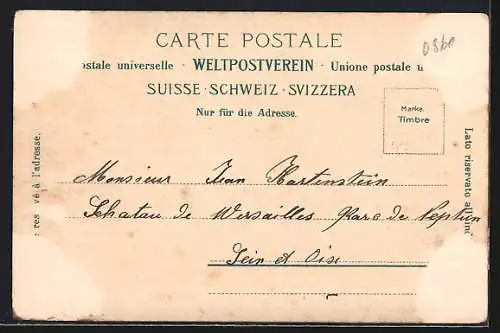 CARTE POSTALE
ostale universelle · WELTPOSTVEREIN · Unione postale u
SUISSE · SCHWEIZ · SVIZZERA
Nur für die Adresse.
Marke.
Timbre
res vé à l'adresse.
Lato riservato all'ind
Monsieur Jean Hartenstein
Schatau de Wersailles Parc de Neptun
Sein et Oise